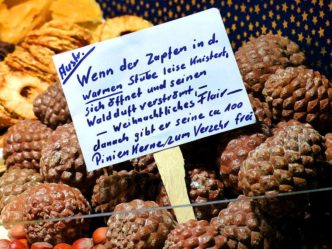 Austr.
Wenn der Zapfen in d.
warmen Stube leise knistert,
sich öffnet und seinen
Waldduft verströmt –
– Weihnachtliches Flair –
danach gibt er seine ca 100
Pinien Kerne/zum Verzehr frei